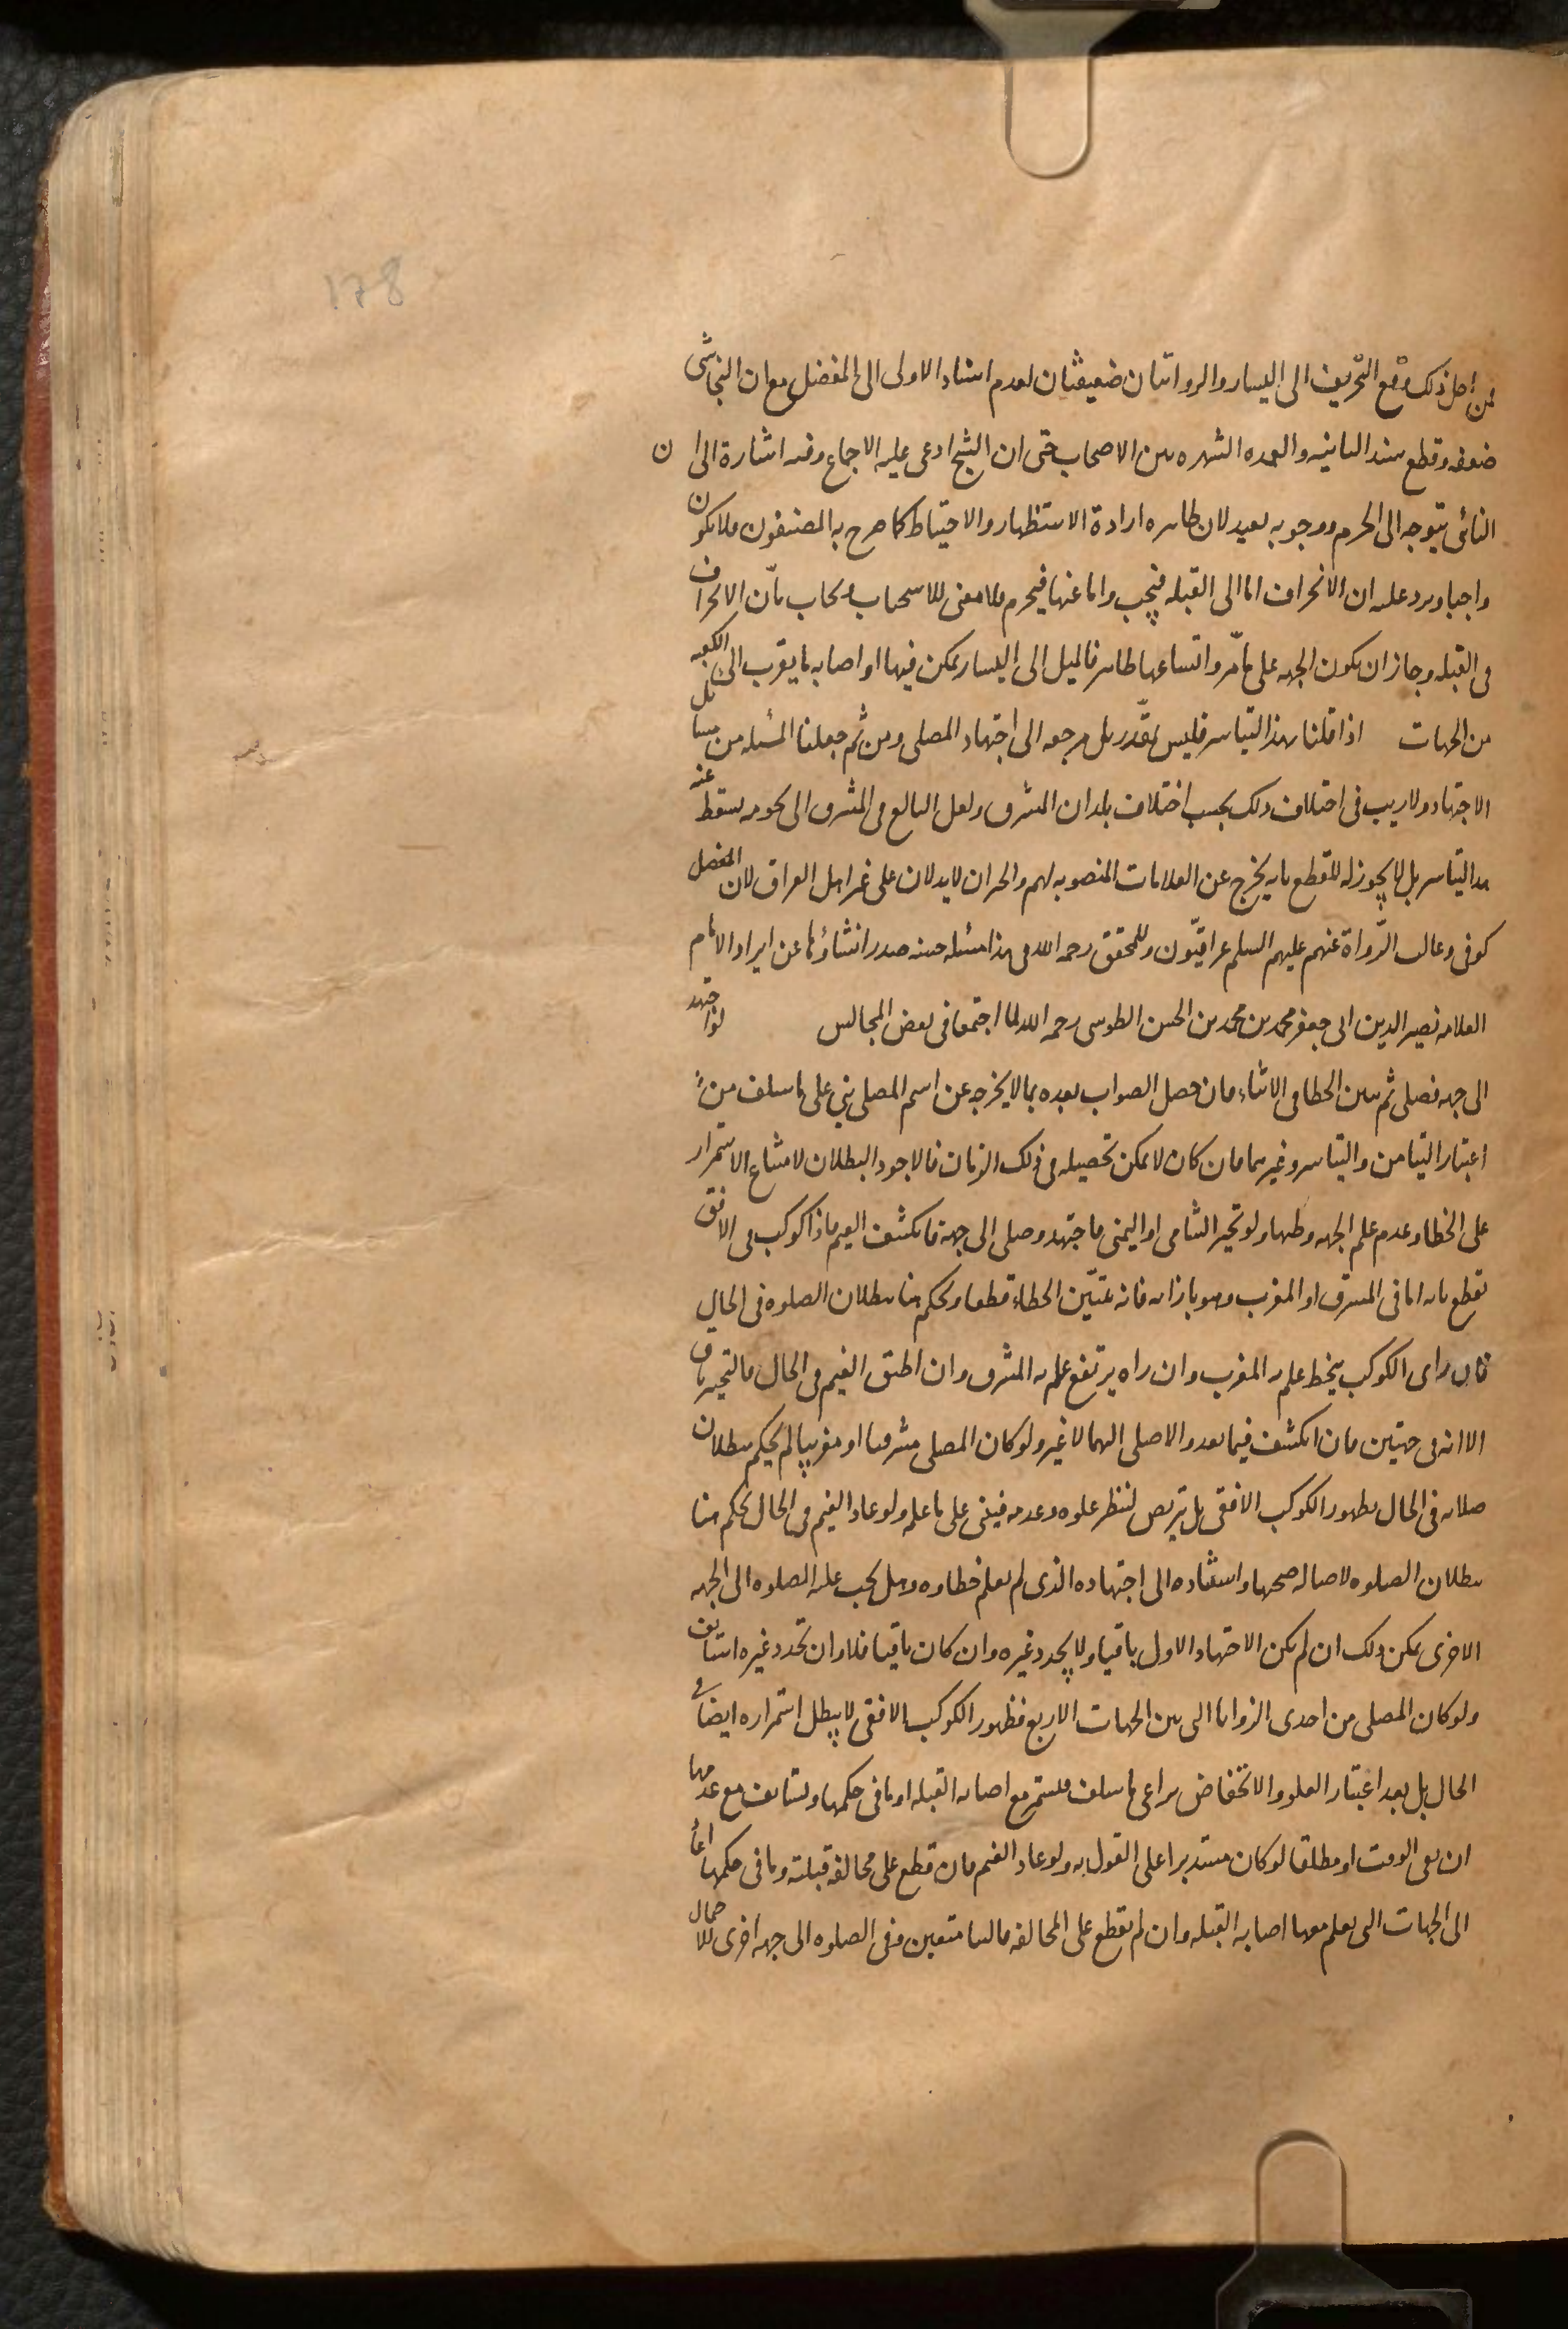 178
فمن اجل ذلك وقع التحريف الى اليسار والروايتان ضعيفتان لعدم اسناد الاولى الى المفضل مع ان النجاشى
ضعفه وقطع سند الثانيه والعمده الشهره بين الاصحاب حتى ان الشيخ ادعى عليه الاجماع وفيه اشارة الى ان
النائى يتوجه الى الحرم ووجوبه بعيد لان ظاهره ارادة الاستظهار والاحتياط كما صرح به المصنفون فلا يكون
واجبا ويرد عليه ان الانحراف اما الى القبله فيجب واما عنها فيحرم فلا معنى للاستحباب ويجاب بأن الانحراف
فى القبله وجاز ان يكون الجهه على ما مّر واتساعها ظاهر فالميل الى اليسار يمكن فيها او اصابه ما يقرب الى الكعبه
من الجهات اذا قلنا بهذا التياسر فليس بمقدّر بل مرجعه الى اجتهاد المصلى ومن ثم جعلنا المسٔله من مسائل
الاجتهاد ولا ريب فى اختلاف ذلك بحسب اختلاف بلدان المشرق ولعل البالغ فى المشرق الى تخومه يسقط عنه
هذا التياسر بل لا يجوز له للقطع بانه يخرج عن العلامات المنصوبه لهم والخبران لا يدلان على غير اهل العراق لان المفضل
كوفى وغالب الرّواة عنهم عليهم السلم عراقيّون وللمحقق رحمه الله فى هذا مسئله حسنه صدر انشاؤها عن ايراد الامام
العلامه نصير الدين ابى جعفر محمد بن محمد بن الحسن الطوسى رحمه الله لما اجتمعا فى بعض المجالس لو اجتهد
الى جهه فصلى ثم تبين الخطا فى الاثناء فان حصل الصواب بعده بما لا يخرجه عن اسم المصلى بنى على ما سلف من
اعتبار التيامن والتياسر وغيرهما فان كان لا يمكن تحصيله فى ذلك الزمان فالاجود البطلان لامتناع الاستمرار
على الخطا وعدم علم الجهه وظنها ولو تحير الشامى او اليمنى فاجتهد وصلى الى جهة فانكشف الغيم فاذا كوكب فى الافق
نقطع بانه اما فى المشرق او المغرب وهو بازائه فانه يتبيّن الخطاء قطعا ويحكم هنا ببطلان الصلوه فى الحال
فان راى الكوكب ينحط علم به المغرب وان راه يرتفع علم به المشرق وان اطبق الغيم فى الحال فالتحير باق
الا انه فى جهتين فان انكشف فيما بعد والا صلى اليهما لا غير ولو كان المصلى مشرقيا او مغربيا لم يحكم ببطلان
صلاته فى الحال بظهور الكوكب الافقى بل يتربص لننظر علوه وعدمه فيبنى على ما علمه ولو عاد الغيم فى الحال لم يحكم هنا
ببطلان الصلوه لاصاله صحتها واستناده الى اجتهاده الذى لم يعلم خطاوه وهل يجب عليه الصلوه الى الجهه
الاخرى يمكن ذلك ان لم يكن الاجتهاد الاول باقيا ولا يجدد غيره وان كان باقيا فلا وان تجدد غيره استانف
ولو كان المصلى من احدى الزوايا التى بين الجهات الاربع فظهور الكوكب الافقى لا يبطل استمراره ايضا فى
الحال بل بعد اعتبار العلو والانخفاض يراعى ما سلف فيستمر مع اصابه القبله او ما فى حكمها ويستانف مع عدمها
ان بقى الوقت او مطلقا لو كان مستدبرا على القول به ولو عاد الغيم فان قطع على مخالفه قبلته وما فى حكمها
الى الجهات التى يعلم معها اصابه القبله وان لم يقطع على المخالفه فالبنا متعين وفى الصلوه الى جهه اخرى للاحتمال